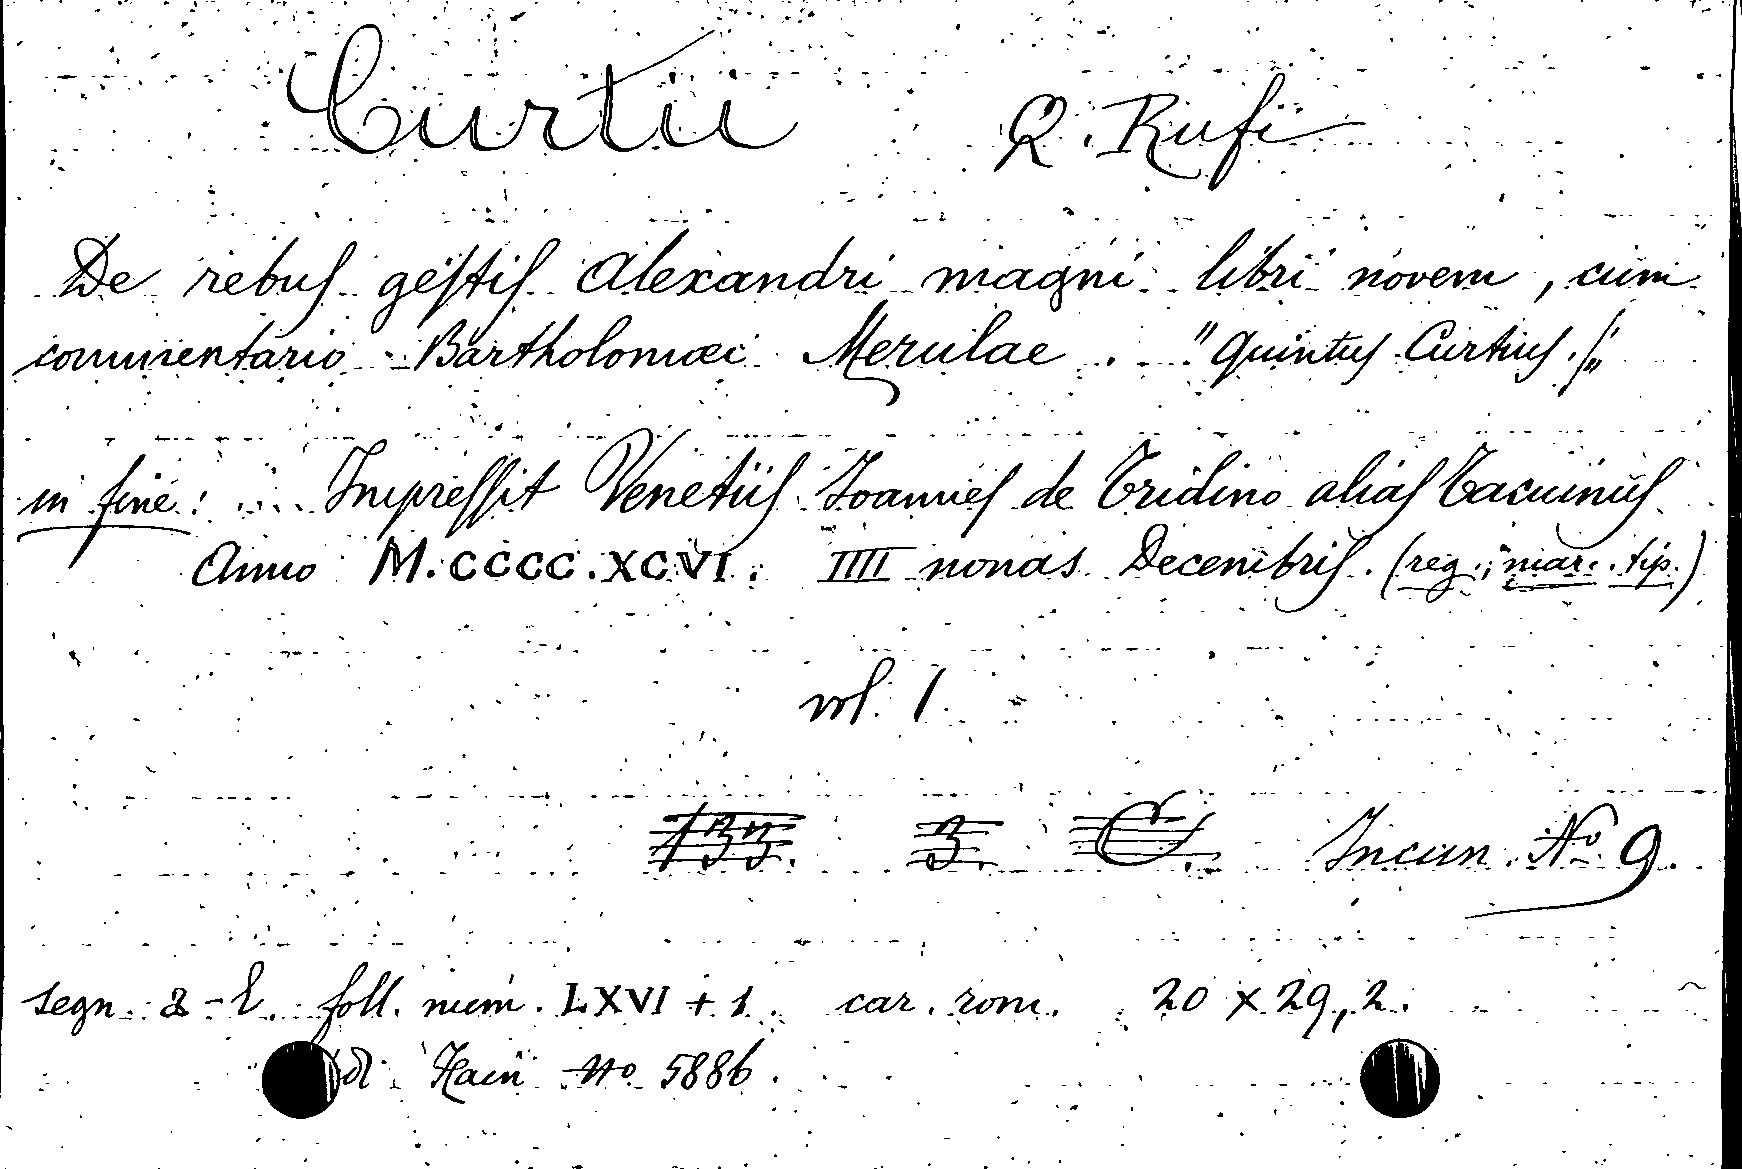 Curtii Q. Rufi
De rebus gestis Alexandri magni libri novem, cum
commentario Bartholomæi Merulae. "Quintus Curtius./„
in fine: ... Impressit Venetiis Ioannes de Tridino alias Tacuinus
Anno M.CCCC.XCVI. IIII nonas Decembris. (reg.; mar. tip.)
vol. 1.
133. 3. C. Incun. No. 9.
segn. a-l. foll. num. LXVI + 1. car. rom. 20 x 29,2.
Hain No 5886.